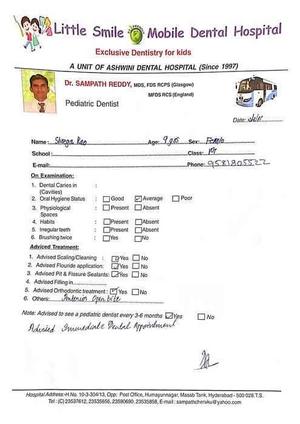 Little Smile Mobile Dental Hospital
Exclusive Dentistry for kids
A UNIT OF ASHWINI DENTAL HOSPITAL (Since 1997)
Dr. SAMPATH REDDY, MDS, FDS RCPS (Glasgow)
MFDS RCS (England)
Pediatric Dentist
Date:
Name: Rao Age: 9 yrs Sex: Female
School: Class:
E-mail: Phone: 9581805522
On Examination:
1. Dental Caries in :
(Cavities)
2. Oral Hygiene Status : Good Average Poor
3. Physiological : Present Absent
Spaces
4. Habits : Present Absent
5. Irregular teeth : Present Absent
6. Brushing twice : Yes No
Adviced Treatment:
1. Advised Scaling/Cleaning : Yes No
2. Advised Flouride application: Yes No
3. Advised Pit & Fissure Sealants: Yes No
4. Advised Filling in
5. Advised Orthodontic treatment : Yes No
6. Others: Anterior Open bite
Note: Advised to see a pediatric dentist every 3-6 months Yes No
Advised Immediate Dental Appointment
Hospital Address:-H.No. 10-3-304/13, Opp: Post Office, Humayunnagar, Masab Tank, Hyderabad - 500 028 T.S.
Tel: (C) 23537612, 23535656, 23590690, 23535858, E-mail: sampathcheruku@yahoo.co.in